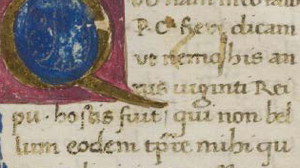 P.C. fieri dicam
ut nemo his an
nis uiginti Rei
pu. hostis fuit qui non bel
lum eodem tpre mihi qu